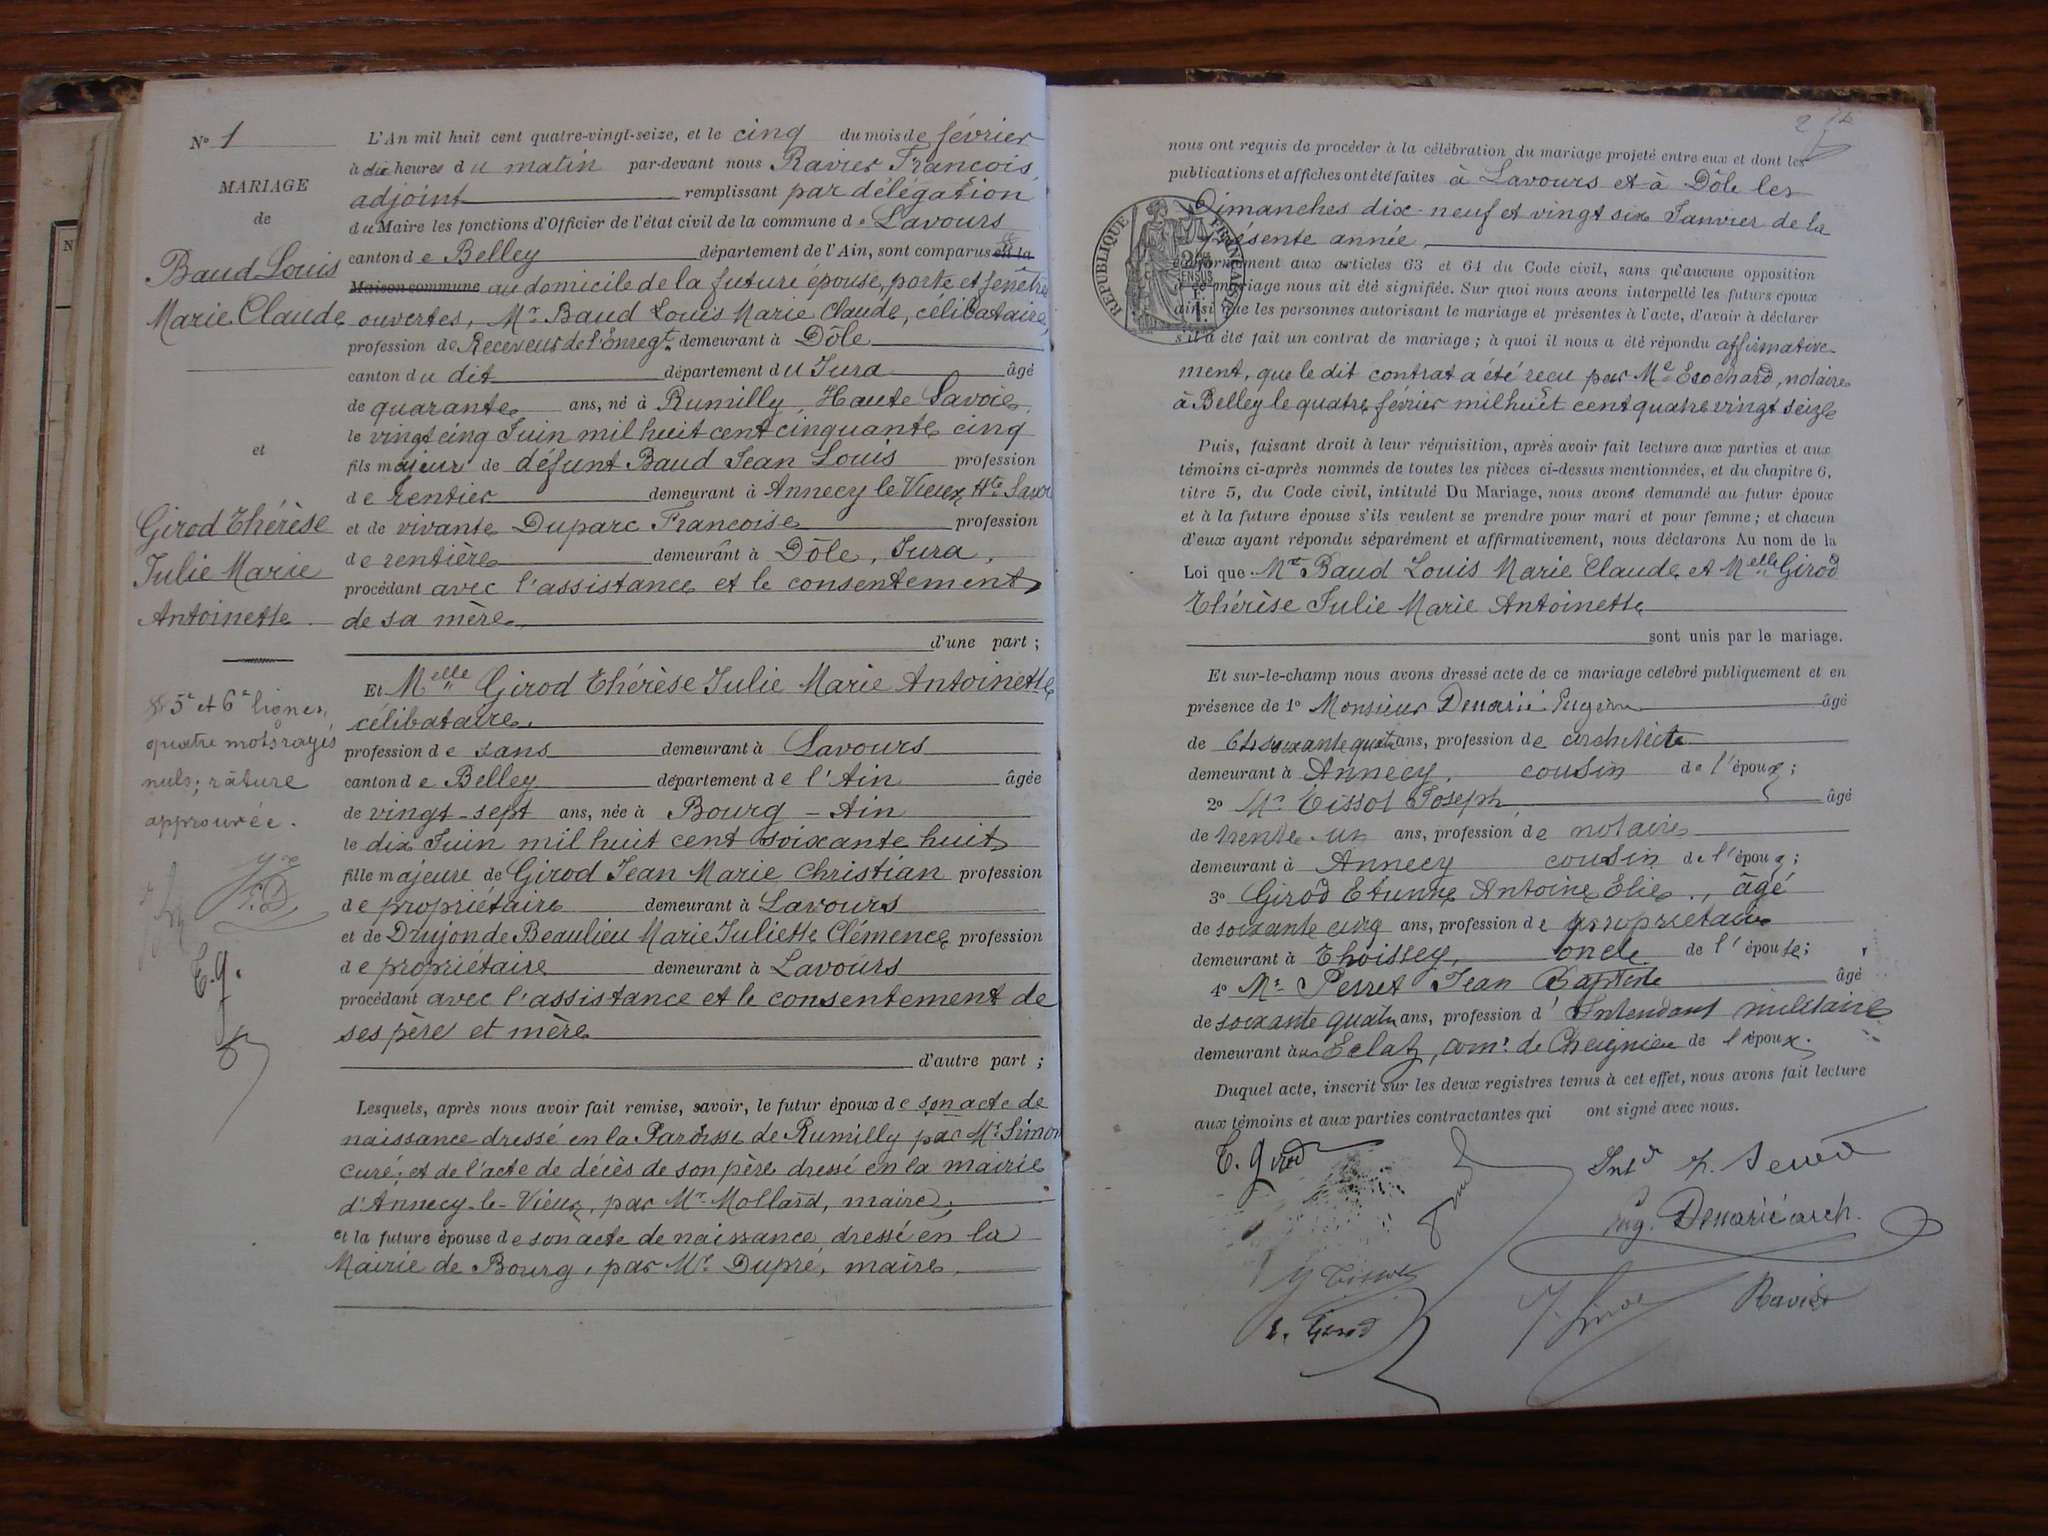 N° 1
MARIAGE
de
Baud Louis
Marie Claude
et
Girod Thérèse
Julie Marie
Antoinette
5e et 6e lignes,
quatre mots rayés
nuls; râture
approuvée.
T. g.
L'An mil huit cent quatre-vingt-seize, et le cinq du mois de février
à dix heures du matin par-devant nous Ravier François,
adjoint remplissant par délégation
du Maire les fonctions d'Officier de l'état civil de la commune de Lavours
canton de Belley département de l'Ain, sont comparus en la
Maison commune au domicile de la future épouse, porte et fenêtre
ouvertes, Mr Baud Louis Marie Claude, célibataire,
profession de Receveur de l'Enregt demeurant à Dôle
canton du dit département du Jura âgé
de quarante ans, né à Rumilly, Haute Savoie,
le vingt cinq Juin mil huit cent cinquante cinq
fils majeur de défunt Baud Jean Louis profession
de rentier demeurant à Annecy le Vieux Hte Savoie
et de vivante Duparc Françoise profession
de rentière demeurant à Dôle, Jura,
procédant avec l'assistance et le consentement
de sa mère
d'une part ;
Et Melle Girod Thérèse Julie Marie Antoinette,
célibataire,
profession de sans demeurant à Lavours
canton de Belley département de l'Ain âgée
de vingt-sept ans, née à Bourg - Ain
le dix Juin mil huit cent soixante huit
fille majeure de Girod Jean Marie Christian profession
de propriétaire demeurant à Lavours
et de Dujon de Beaulieu Marie Juliette Clémence profession
de propriétaire demeurant à Lavours
procédant avec l'assistance et le consentement de
ses père et mère
d'autre part ;
Lesquels, après nous avoir fait remise, savoir, le futur époux de son acte de
naissance dressé en la Paroisse de Rumilly par Mr Simon
curé; et de l'acte de décès de son père dressé en la mairie
d'Annecy-le-Vieux, par Mr Mollard, maire;
et la future épouse de son acte de naissance dressé en la
Mairie de Bourg, par Mr Dupré, maire,
2
nous ont requis de procéder à la célébration du mariage projeté entre eux et dont les
publications et affiches ont été faites à Lavours et à Dôle les
Dimanches dix-neuf et vingt six Janvier de la
présente année,
RÉPUBLIQUE FRANÇAISE
conformément aux articles 63 et 64 du Code civil, sans qu'aucune opposition
mariage nous ait été signifiée. Sur quoi nous avons interpellé les futurs époux
ainsi que les personnes autorisant le mariage et présentes à l'acte, d'avoir à déclarer
s'il a été fait un contrat de mariage ; à quoi il nous a été répondu affirmative-
ment, que le dit contrat a été reçu par Me Esochard, notaire
à Belley le quatre février mil huit cent quatre vingt seize
Puis, faisant droit à leur réquisition, après avoir fait lecture aux parties et aux
témoins ci-après nommés de toutes les pièces ci-dessus mentionnées, et du chapitre 6,
titre 5, du Code civil, intitulé Du Mariage, nous avons demandé au futur époux
et à la future épouse s'ils veulent se prendre pour mari et pour femme ; et chacun
d'eux ayant répondu séparément et affirmativement, nous déclarons Au nom de la
Loi que Mr Baud Louis Marie Claude et Melle Girod
Thérèse Julie Marie Antoinette
sont unis par le mariage.
Et sur-le-champ nous avons dressé acte de ce mariage célébré publiquement et en
présence de 1° Monsieur Denarié Eugène âgé
de soixante quatre ans, profession de architecte
demeurant à Annecy, cousin de l'époux ;
2° Mr Tissot Joseph âgé
de trente-un ans, profession de notaire
demeurant à Annecy cousin de l'époux ;
3° Girod Etienne Antoine Elie, âgé
de soixante cinq ans, profession de propriétaire
demeurant à Thoissey, oncle de l'épouse ;
4° Mr Perret Jean Baptiste âgé
de soixante quatre ans, profession d'Intendant militaire
demeurant au Eclaz, come de Cheignieu de l'époux.
Duquel acte, inscrit sur les deux registres tenus à cet effet, nous avons fait lecture
aux témoins et aux parties contractantes qui ont signé avec nous.
T. girod
Eug. Denarié arch.
J Tissot
E. Girod
Ravier